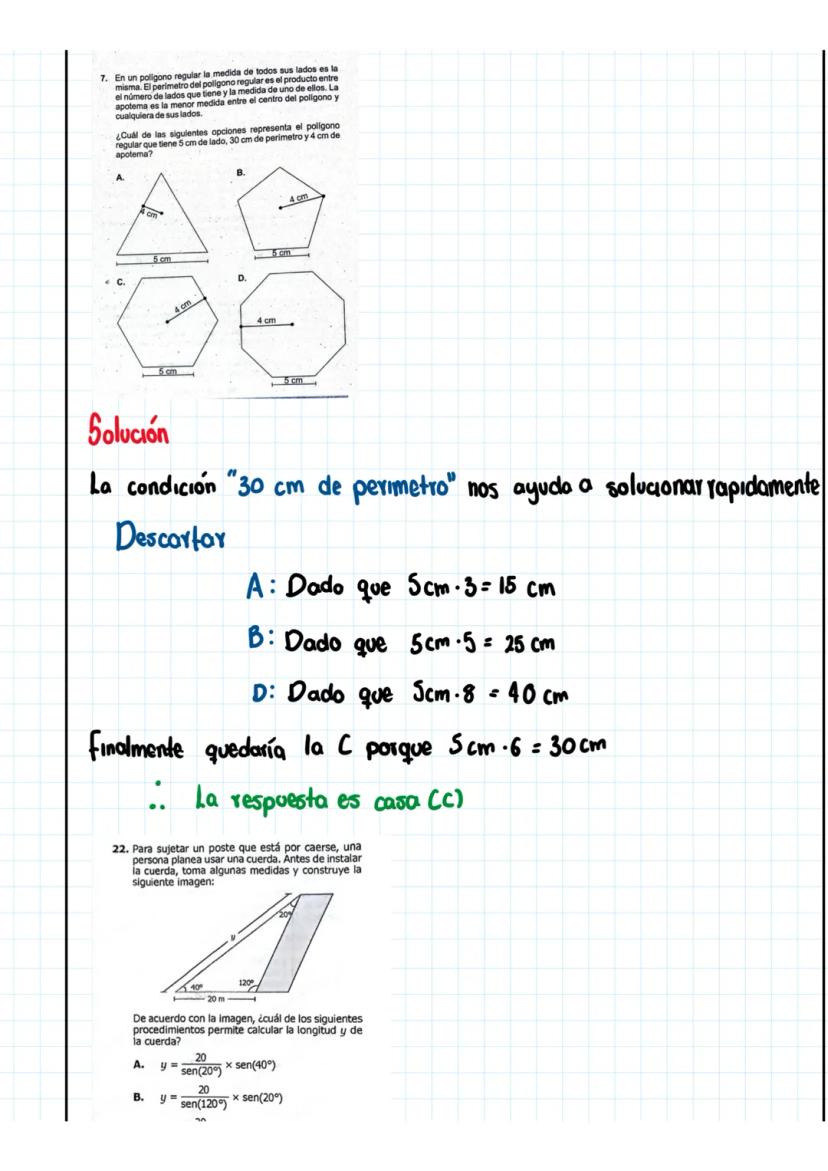 7. En un polígono regular la medida de todos sus lados es la
misma. El perímetro del polígono regular es el producto entre
el número de lados que tiene y la medida de uno de ellos. La
apotema es la menor medida entre el centro del polígono y
cualquiera de sus lados.
¿Cuál de las siguientes opciones representa el polígono
regular que tiene 5 cm de lado, 30 cm de perímetro y 4 cm de
apotema?
A.
4 cm
5 cm
B.
4 cm
5 cm
C.
4 cm
5 cm
D.
4 cm
5 cm
Solución
La condición "30 cm de perimetro" nos ayuda a solucionar rapidamente
Descartar
A: Dado que 5cm·3 = 15 cm
B: Dado que 5cm·5 = 25 cm
D: Dado que 5cm·8 = 40 cm
Finalmente quedaría la C porque 5cm·6 = 30cm
∴ La respuesta es casa (C)
22. Para sujetar un poste que está por caerse, una
persona planea usar una cuerda. Antes de instalar
la cuerda, toma algunas medidas y construye la
siguiente imagen:
20º
y
40º
120º
20 m
De acuerdo con la imagen, ¿cuál de los siguientes
procedimientos permite calcular la longitud y de
la cuerda?
A. y = 20/sen(20º) × sen(40º)
B. y = 20/sen(120º) × sen(20º)